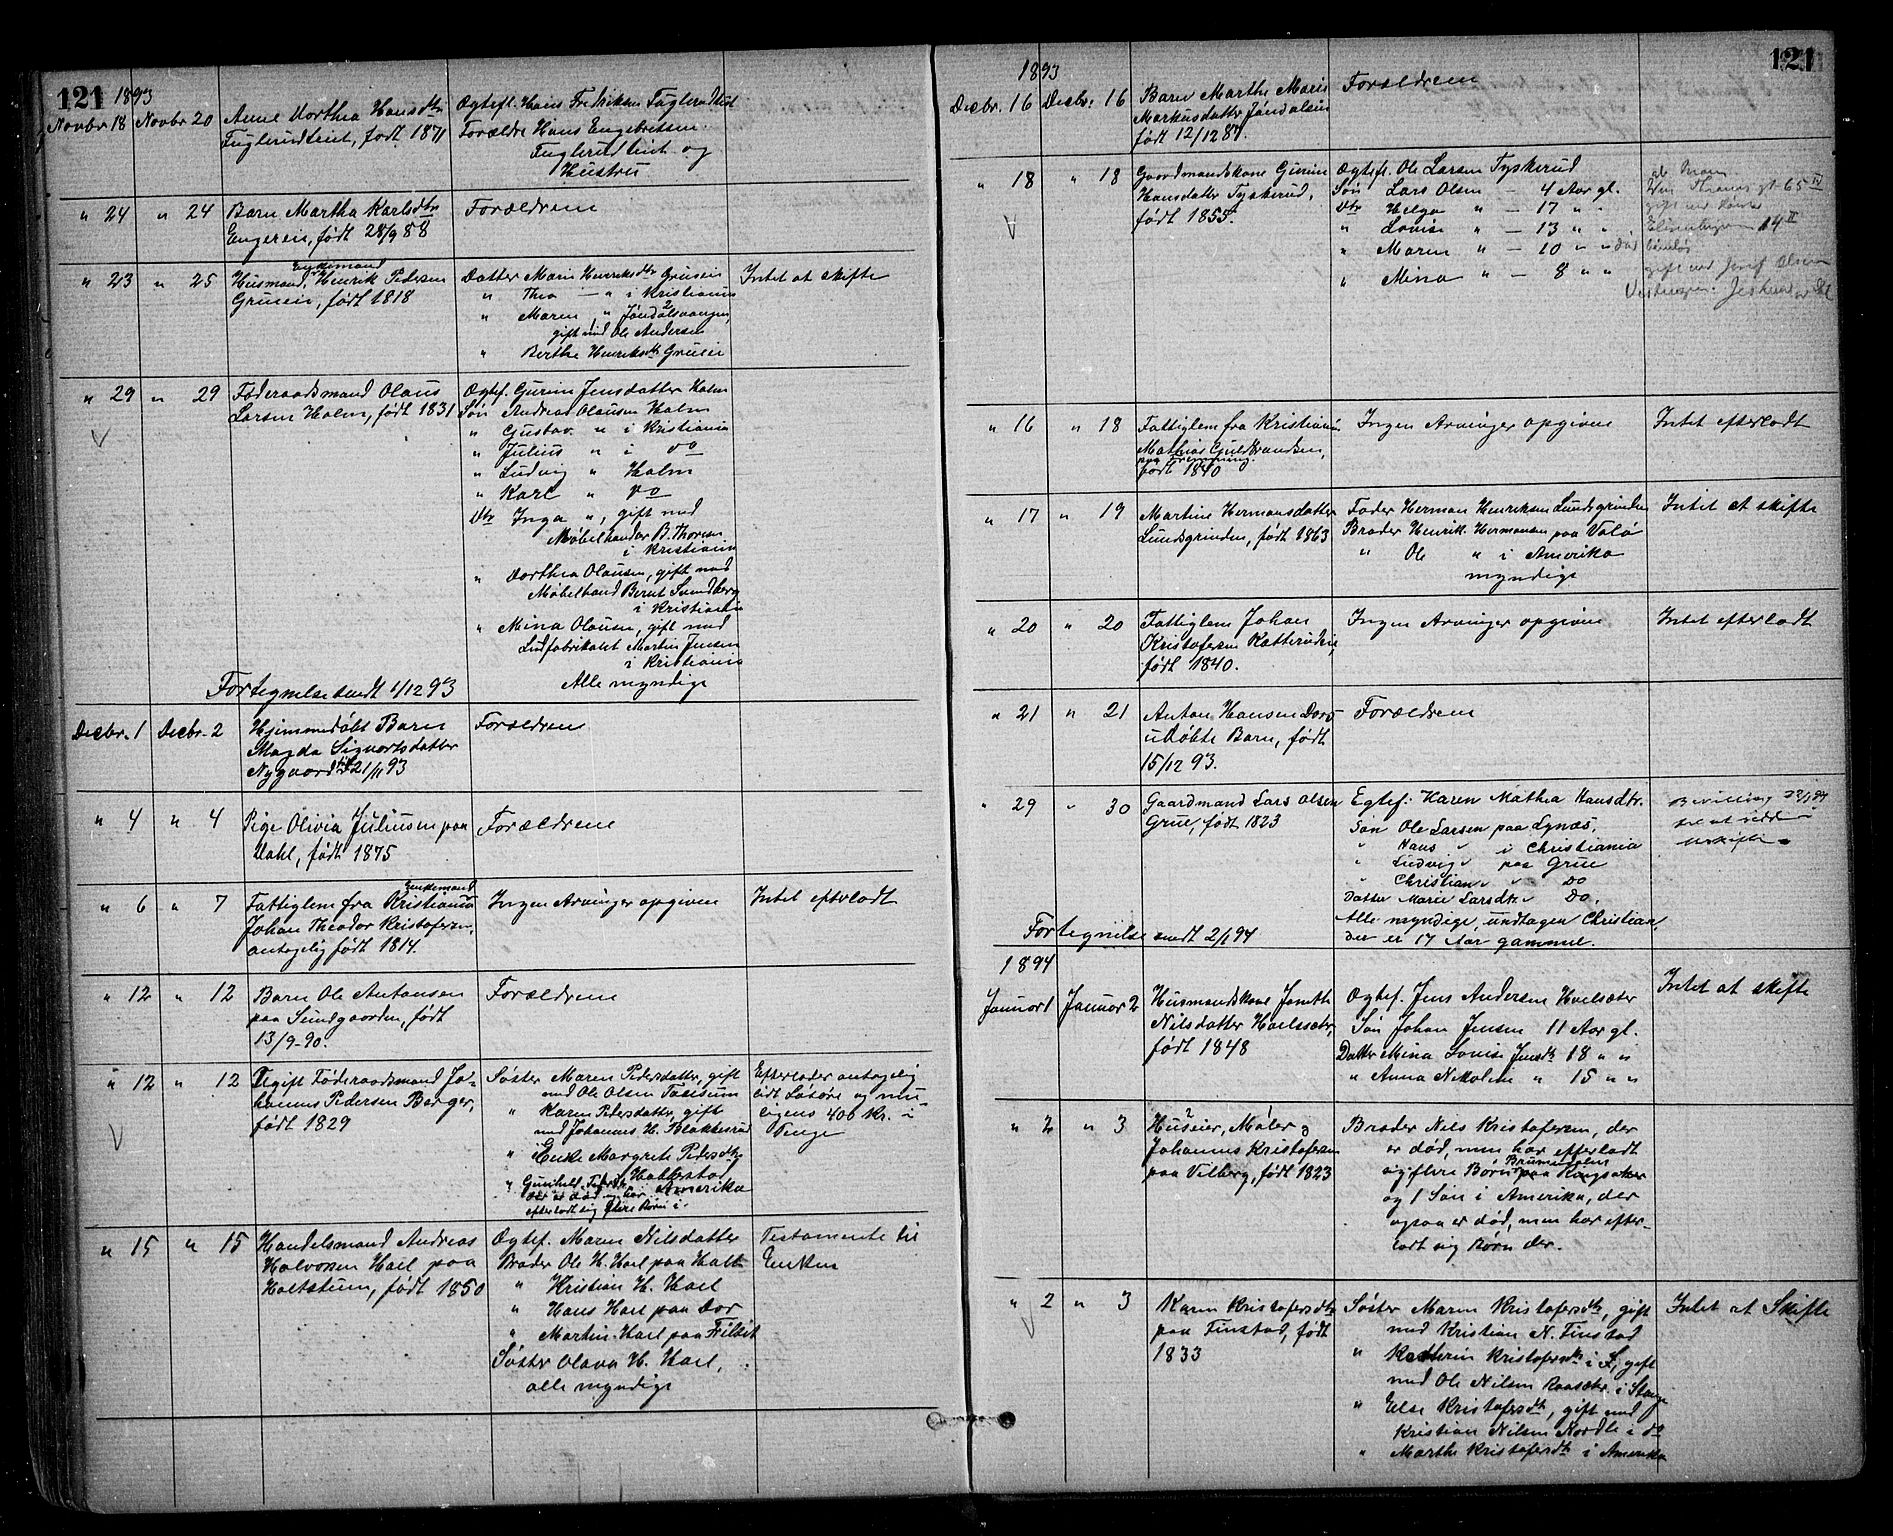 121
1893
Novbr 18 Novbr 20 Anne Dorthea Hansdtr
Fuglerudteiet, født 1871
Ægtef. Hans Fredriksen Fuglerudteiet
Forældre Hans Engebretsen
Fuglerudteiet og
Hustru
" 24 " 24 Barn Martha Karlsdtr
Engereie, født 28/9 88
Forældrene
" 23 " 25 Enkemand
Husmand, Henrik Pedersen
Grueeie, født 1818
Datter Marie Henriksdtr Grueeie
" Thea — " i Kristiania
" Maren " Jøndalsvangen,
gift med Ole Andersen
" Berthe Henriksdtr Grueeie
Intet at skifte
" 29 " 29 Føderaadsmand Olaus
Larsen Holm, født 1831
Ægtef. Gurine Jensdatter Holm
Søn Andreas Olausen Holm
" Gustav " i Kristiania
" Julius " i do
" Ludvig " Holm
" Karl " do
Dtr Inga ", gift med
Møbelhandler B. Thoresen
i Kristiania
" Dorthea Olausen, gift med
Møbelhand Bernt Sundberg
i Kristiania
" Mina Olausen, gift med
Martin Jensen
i Kristiania
Alle myndige
Fortegnelse sendt 1/12 93
Decbr. 1 Decbr. 2 Hjemmedøbt Barn
Magda Sigvartsdatter
Nygaard, født 21/11 93
Forældrene
" 4 " 4 Pige Olivia Juliusen paa
Dahl, født 1875
Forældrene
" 6 " 7 Enkemand
Fattiglem fra Kristiania
Johan Theodor Kristofersen,
antagelig født 1814.
Ingen Arvinger opgivne
Intet efterladt
" 12 " 12 Barn Ole Antonsen
paa Sundgaarden, født
13/9-90.
Forældrene
" 12 " 12 Ugift Føderaadsmand Jo-
hannes Pedersen Berger,
født 1829
Søster Maren Pedersdatter, gift
med Ole Olsen
" Karen Pedersdatter, gift
med Johannes H. Blakkesrud
" Enke Margrete Pedersdtr
Hakkestad
" Gunhild Pedersdtr Amerika
der er død og har
efterladt sig flere Børn i.
Efterlader antagelig
lidt Løsøre og mu-
ligens 400 Kr. i
Penge
" 15 " 15 Handelsmand Andreas
Halvorsen Hoel paa
Holtstuen, født 1850
Ægtef. Maren Nilsdatter
Broder Ole H. Hoel paa Holt
" Kristian H. Hoel
" Hans Hoel paa Dor
" Martin Hoel paa Filset
Søster Olava H. Hoel,
alle myndige
Testamente til
Enken
121
1893
Decbr. 16 Decbr. 16 Barn Marthe Marie
Markusdatter Jøndalseie
født 12/12 87.
Forældrene
" 18 " 18 Gaardmandskone Gurine
Hansdatter Tyskerud,
født 1855.
Ægtef. Ole Larsen Tyskerud
Søn Lars Olsen — 4 Aar gl.
Dtr Helga " — 17 " "
" Lovise " — 13 " "
" Maren " — 10 " "
" Mina " — 8 " "
" 16 " 18 Fattiglem fra Kristiania
Mathias Guldbrandsen,
født 1840
Ingen Arvinger opgivne
Intet efterladt
" 17 " 19 Martine Hermansdatter
Lundsgrinden, født 1863
Fader Herman Henriksen Lundsgrinden
Broder Henrik Hermansen paa Valø
" Ole " i Amerika
myndige
Intet at skifte
" 20 " 20 Fattiglem Johan
Kristofersen Katterudeie,
født 1840.
Ingen Arvinger opgivne
Intet efterladt
" 21 " 21 Anton Hansen Dors
udøbte Barn, født
15/12 93.
Forældrene
" 29 " 30 Gaardmand Lars Olsen
Grue, født 1823
Egtef. Karen Mathea Hansdtr.
Søn Ole Larsen paa Lynæs.
" Hans " i Christiania
" Ludvig " paa Grue
" Christian " " Do
Datter Marie Larsdtr " Do.
Alle myndige, undtagen Christian,
der er 17 Aar gammel.
Bevilling 22/1 94
til at sidde i
uskifte.
Fortegnelse sendt 2/1 94
1894
Januar 1 Januar 2 Husmandskone Jonette
Nilsdatter Hoelssæter,
født 1848
Ægtef. Jens Andersen Hoelsæter
Søn Johan Jensen 11 Aar gl.
Datter Mina Lovise Jensdtr 18 " "
" Anna Nikoline " 15 " "
Intet at skifte
" 2 " 3 Huseier, Maler
Johannes Kristofersen
paa Vilberg, født 1823
Broder Nils Kristofersen, der
er død, men har efterladt
sig flere Børn paa
og 1 Søn i Amerika, der
ogsaa er død, men har efter-
ladt sig Børn der.
" 2 " 3 Karen Kristofersdtr
paa Finstad, født
1833
Søster Maren Kristofersdtr, gift
med Kristian N. Finstad
" Kathrine Kristofersdtr i F, gift
med Ole Nilsen Raasæter i Stange
" Else Kristofersdtr, gift med
Kristian Nilsen Nordli i do
" Marthe Kristofersdtr i Amerika
Intet at Skifte